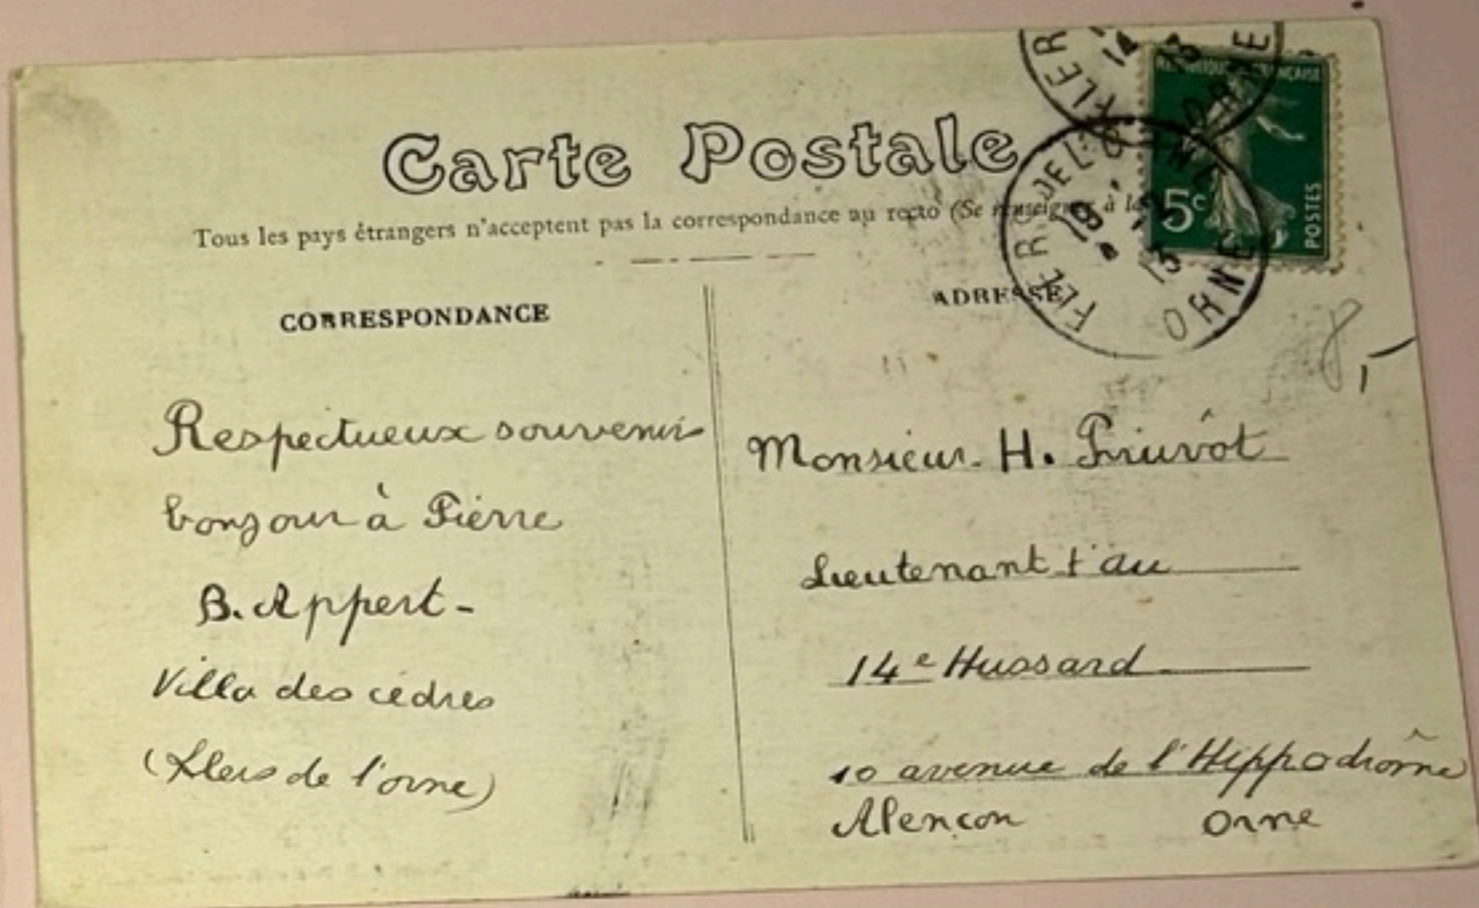 Carte Postale
Tous les pays étrangers n'acceptent pas la correspondance au recto (Se renseigner à la
CORRESPONDANCE
ADRESSE
RÉPUBLIQUE FRANÇAISE
5c
POSTES
FLERS DE L'ORNE
19
13
ORNE
Respectueux souvenir
bonjour à Pierre
B. Appert -
Villa des cèdres
(Flers de l'orne)
Monsieur. H. Pruvôt
Lieutenant t au
14e Hussard
10 avenue de l'Hippodrôme
Alençon Orne